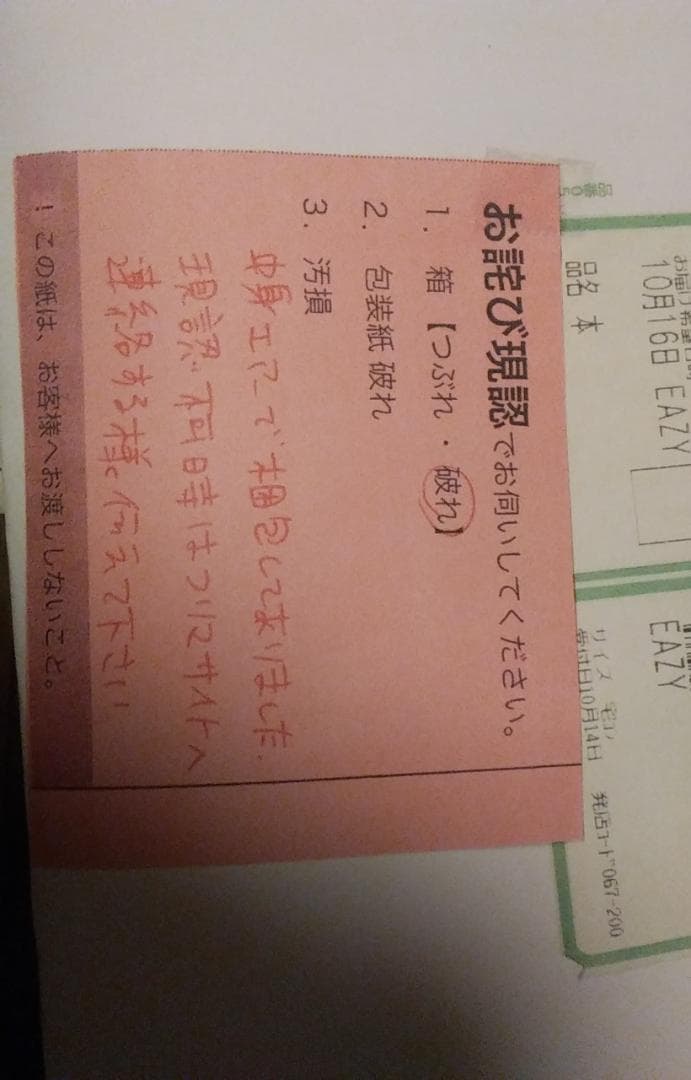 お詫び現認でお伺いしてください。
1. 箱 【つぶれ・破れ】
2. 包装紙 破れ
3. 汚損
中身エアーで梱包してありました。
現認 何時は つりにサイトへ
連絡する様。伝えて下さい
! この紙は、お客様へお渡ししないこと。
10月16日 EAZY
品名 本
EAZY
サイズ 宅コン
受付日10月14日
発店コード 067-200